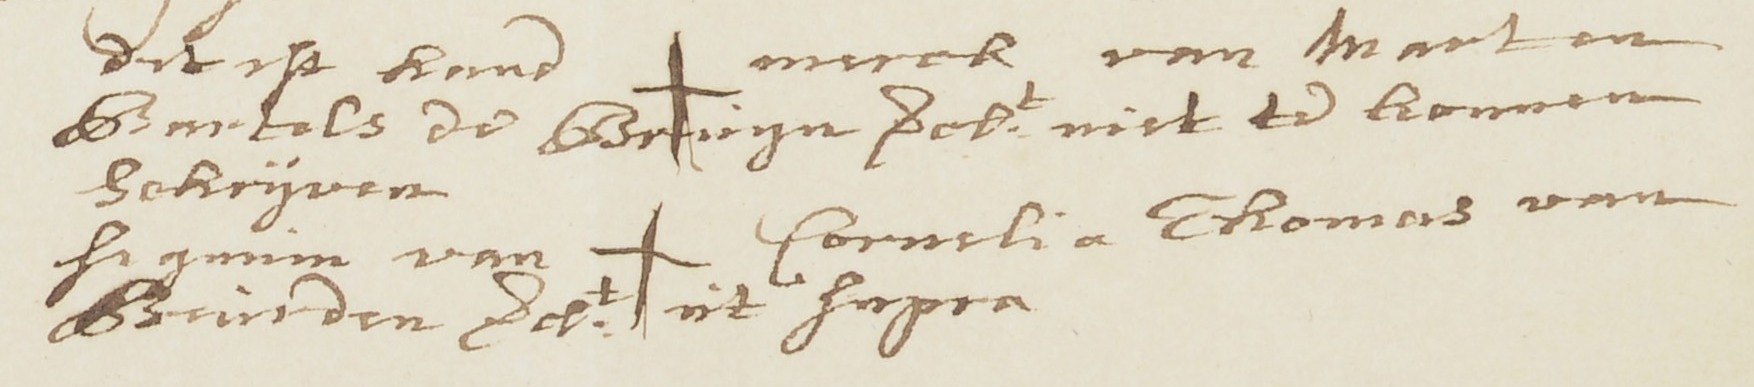 dit ist hand merck van Marten
Bartels de Bruijn verkt niet te konnen
Schrijven
Signum van Cornelia Thomas van
Beurden verkt ut supra